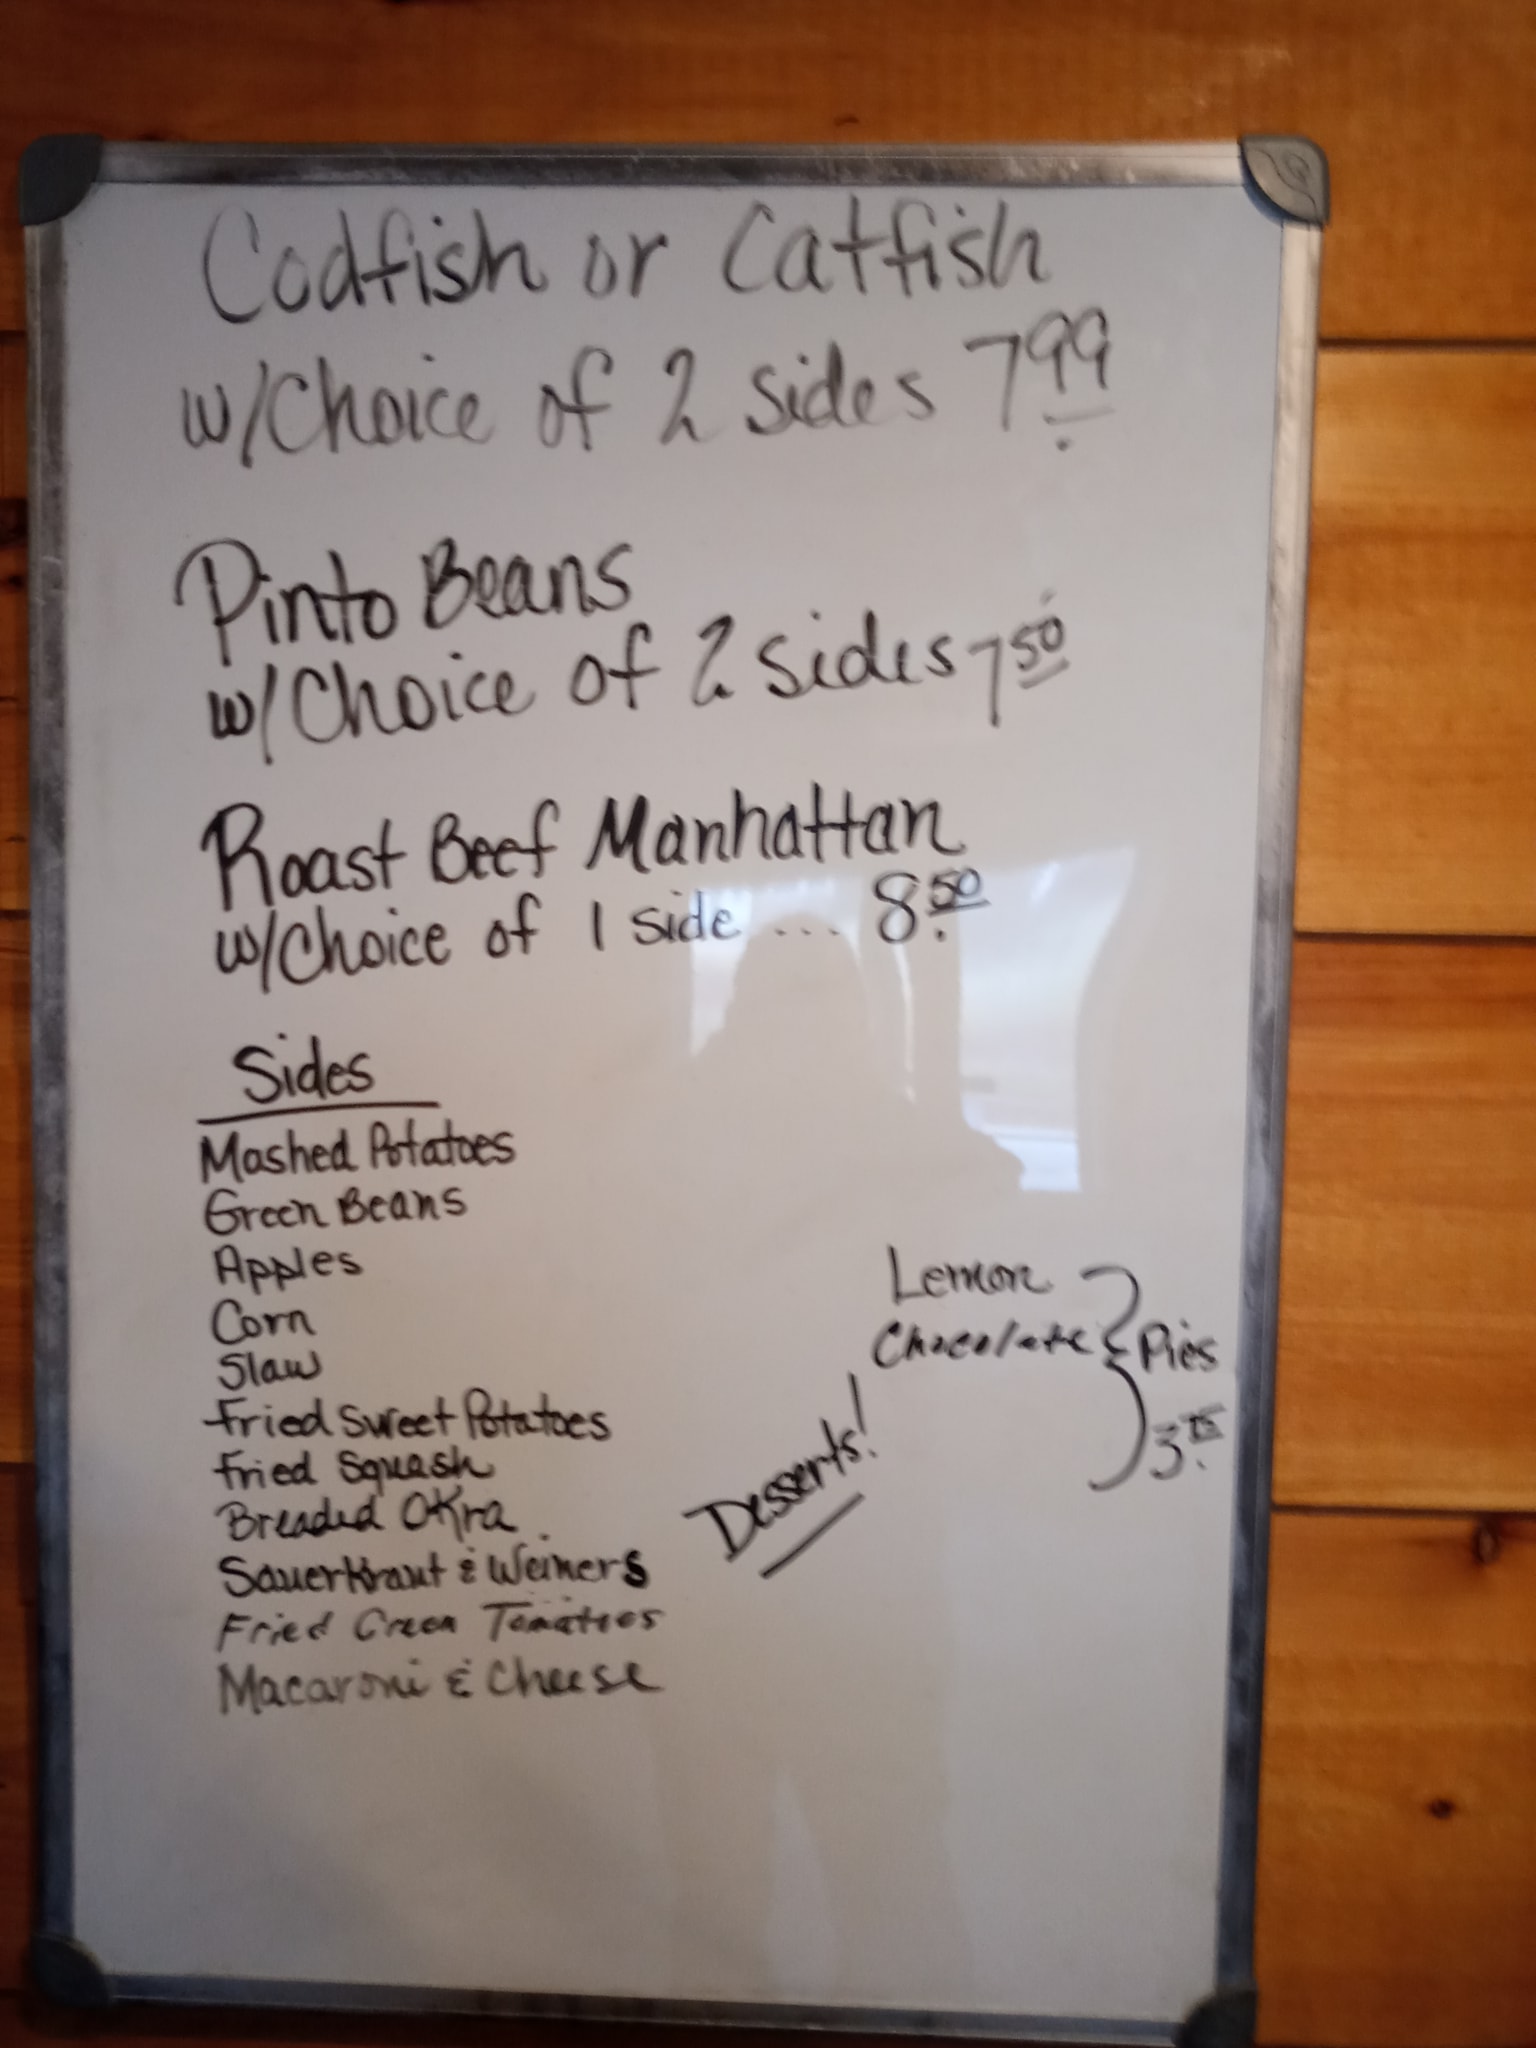 Codfish or Catfish
w/Choice of 2 sides 7.99
Pinto Beans
w/Choice of 2 sides 7 50
Roast Beef Manhattan
w/Choice of 1 side ... 8.50
Sides
Mashed Potatoes
Green Beans
Apples
Corn
Slaw
Fried Sweet Potatoes
Fried Squash
Breaded Okra
Sauerkraut & Weiners
Fried Green Tomatoes
Macaroni & Cheese
Desserts!
Lemon
Chocolate } Pies
3.75